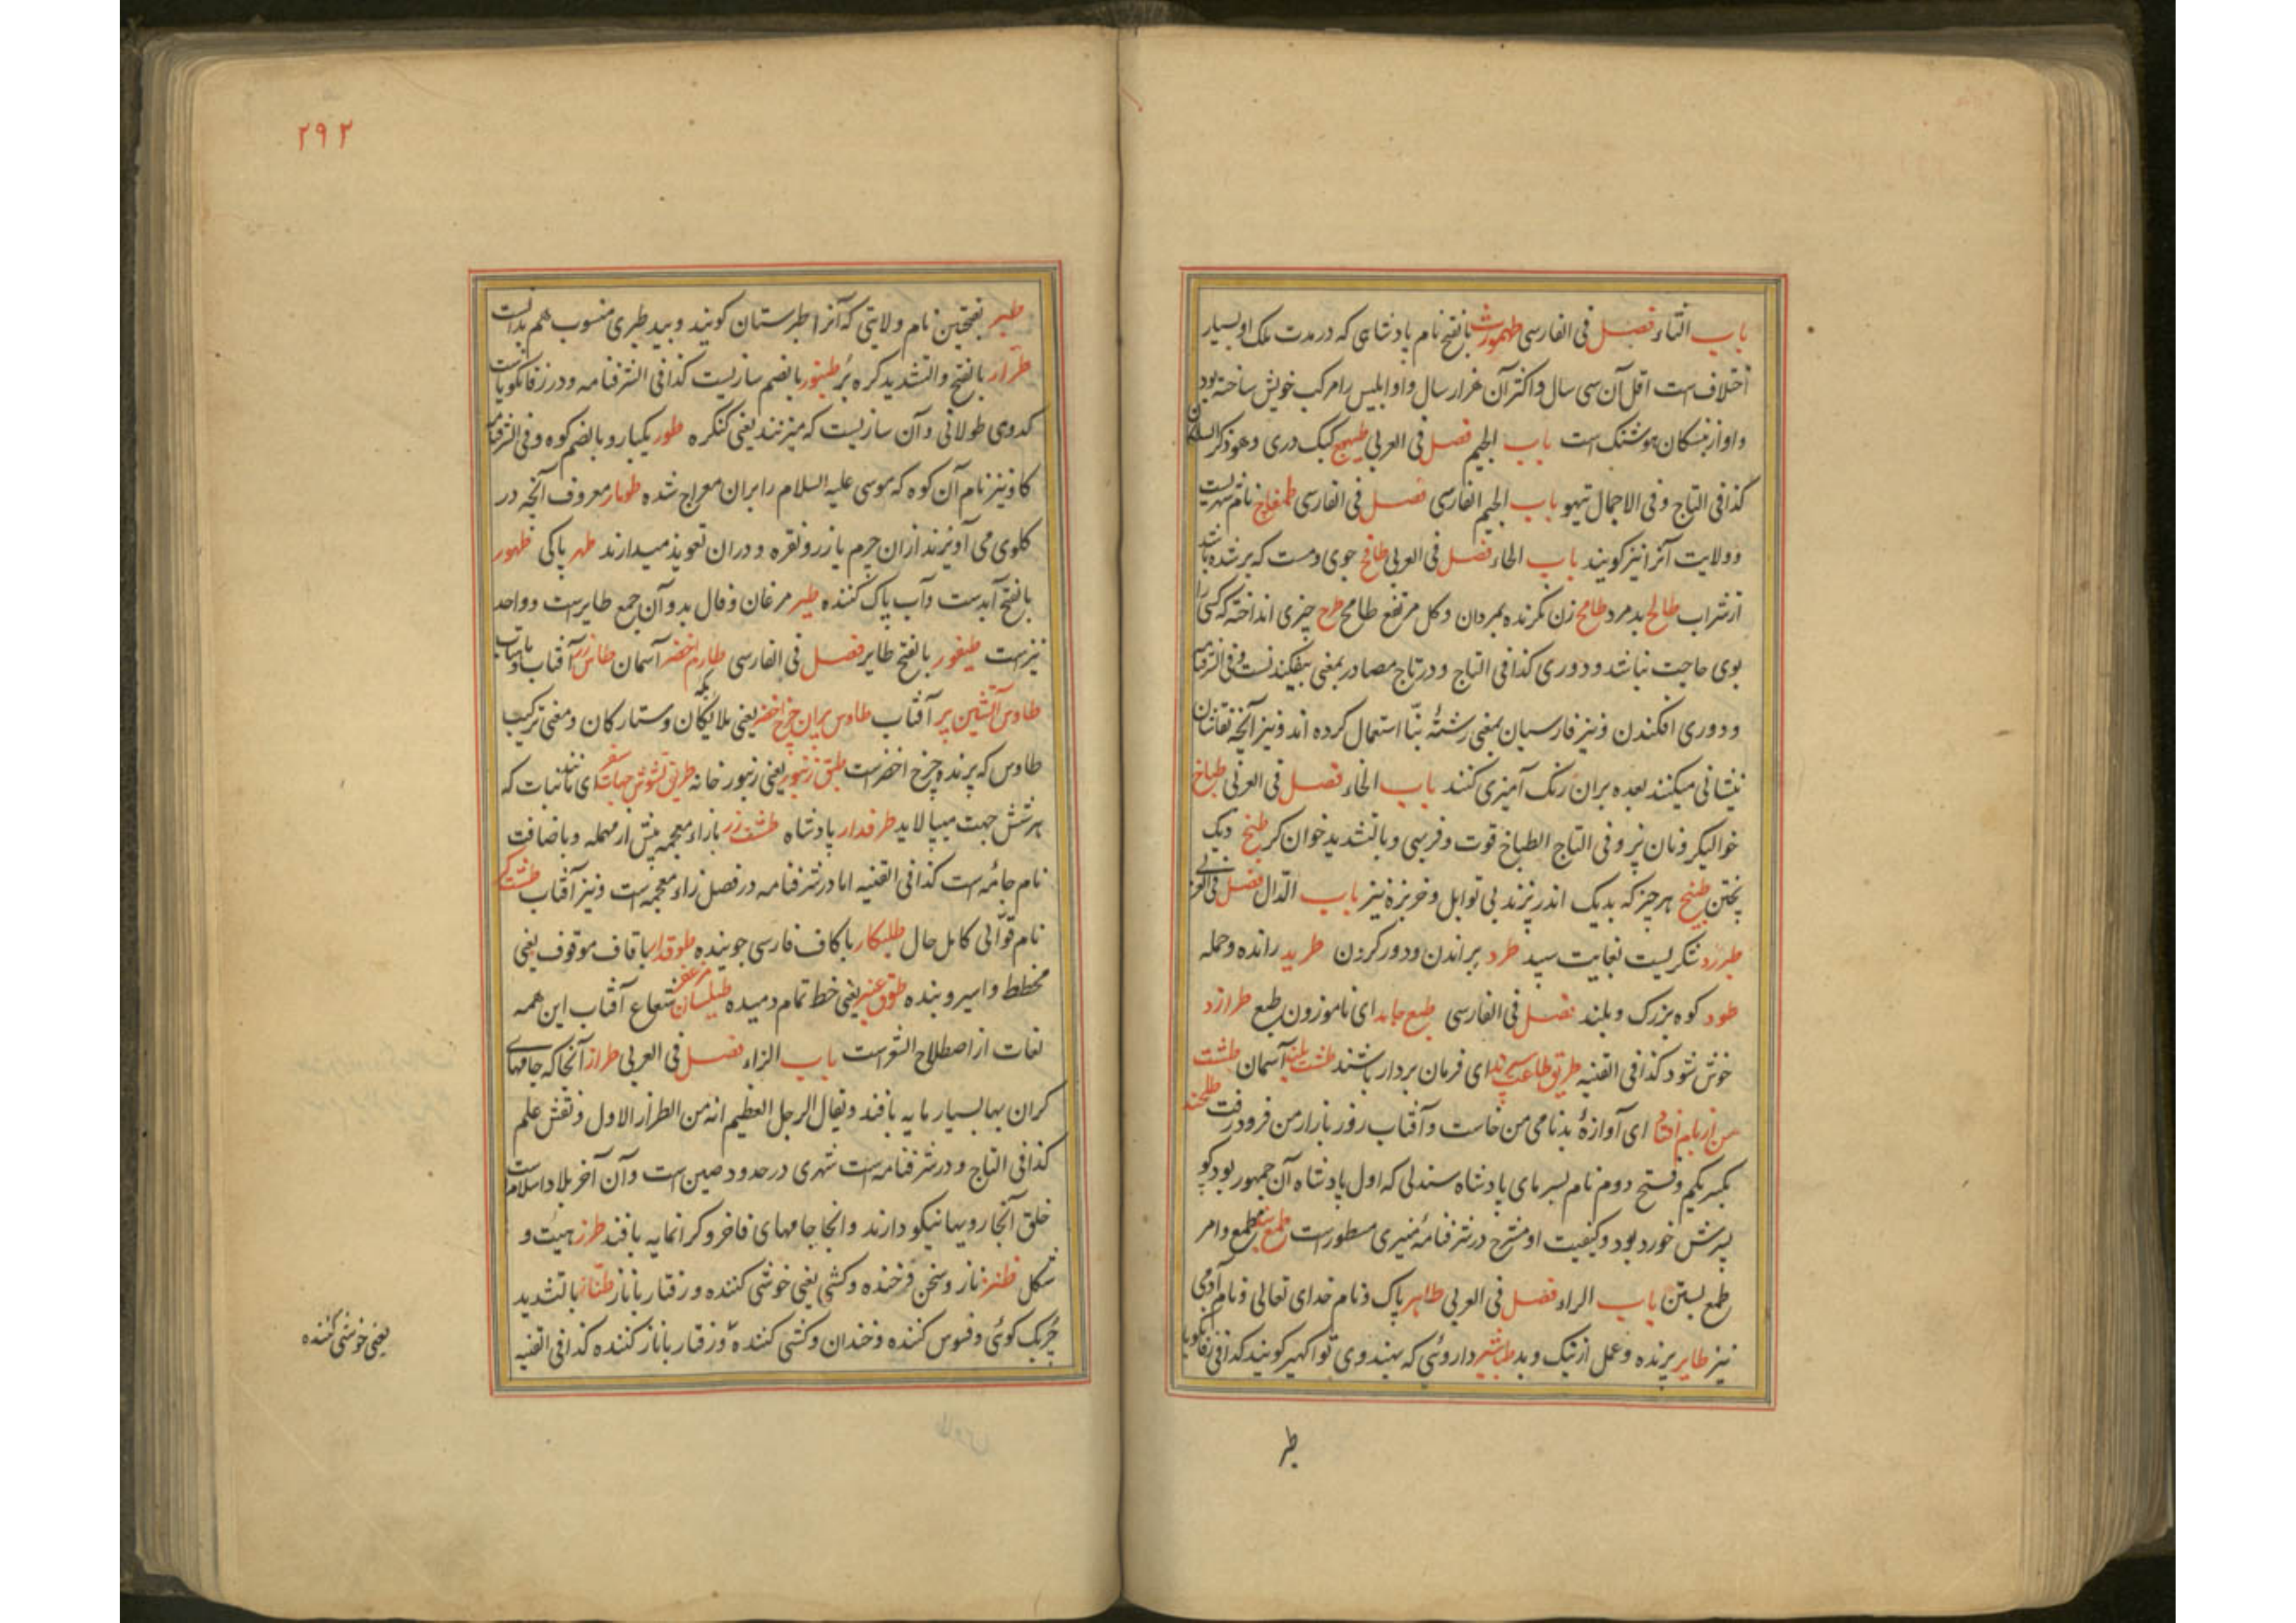 باب الثاء فصل فی الفارسی طهمورث بالفتح نام پادشاهی که در مدت ملک او بسیار
اختلاف است اقل آن سی سال و اکثر آن هزار سال و او ابلیس را مرکب خویش ساخته بود
و او از نبسکان هوشنک است باب الجیم فصل فی العربی طیهوج کبک دری و هو ذکر السلکان
کذا فی التاج و فی الاجمال تیهو باب الجیم الفارسی فصل فی الفارسی طمغاج نام شهریست
و ولایت آنرا نیز کویند باب الحاء فصل فی العربی طافح جوی و مست که پر شده باشد
از شراب طالح بد مرد طامح زن نکرنده بمردان و کل مرتفع طامح طرح چیزی انداخته که کسی را
بوی حاجت نباشد و دوری کذا فی التاج و در تاج مصادر بمعنی بیفکندنست و فی الشرفنامه
و دوری افکندن و نیز فارسیان بمعنی رشتهٔ بنّا استعمال کرده اند و نیز آنچه نقاشان
نیشانی میکنند بعده بران رنک آمیزی کنند باب الخاء فصل فی العربی طباخ
خوالیکر و نان پز و فی التاج الطباخ قوت و فربهی و بالتشدید خوان کر طبخ دیک
پختن طبیخ هر چیز که بدیک اندر پزند بی توابل و خربزه نیز باب الدّال فصل فی العربی
طبرزد شکریست بغایت سپید طرد براندن و دور کردن طرید رانده و حمله
طود کوه بزرک و بلند فصل فی الفارسی طبع جامد ای ناموزون طبع طرازد
خوش شود کذا فی القنیه طریق طاعت سپرند ای فرمان بردار باشند طشت بلند آسمان طشت
من از بام افتاد ای آوازهٔ بدنامی من خاست و آفتاب روز بازار من فرو رفت طلحند
بکسر یکم و فتح دوم نام پسر مای پادشاه سندلی که اول پادشاه آن جمهور بود کو
پسرش خورد بود و کیفیت او مشرح در شرفنامهٔ منیری مسطور است طمع بند مطمع و امر
طمع بستن باب الراء فصل فی العربی طاهر پاک و نام خدای تعالی و نام آدمی
نیز طایر پرنده و عمل از نیک و بد طباشیر داروئی که بهندوی تواکهیر کویند کذا فی زفانکویا
طر
۲۹۲
طبر بفتحتین نام ولایتی که آنرا طبرستان کویند و بید طبری منسوب هم بدانست
طرّار بالفتح و التشدید کره بُر طنبور بالضم سازیست کذا فی الشرفنامه و در زفانکویاست
کدوی طولانی و آن سازیست که میزنند یعنی کنکره طور یکبار و بالضم کوه و فی الشرفنامه
کاو نیز نام آن کوه که موسی علیه السلام را بران معراج شده طومار معروف آنچه در
کلوی می آویزند ازان چرم یا زر و نقره و دران تعویذ میدارند طهر پاکی طهور
بالفتح آبدست و آب پاک کننده طیر مرغان و فال بد و آن جمع طایرست و واحد
نیزست طیفور بالفتح طایر فصل فی الفارسی طارم اخضر آسمان طاس زر آفتاب و ماهتاب
طاوس آتشین پر آفتاب طاوس پران چرخ اخضر یعنی ملایکان و ستارکان و معنی ترکیب
طاوس که پرنده چرخ اخضرست طبق زنبور یعنی زنبور خانه طریق شش جهات ای کائنات که
بهر شش جهت میپالاید طرفدار پادشاه طشت زر بازاء معجمه پیش از مهمله و باضافت
نام جائمه است کذا فی القنیه اما در شرفنامه در فصل زاء معجمه است و نیز آفتاب طشتکر
نام قوّالی کامل حال طلبکار با کاف فارسی جوینده طوقدار با قاف موقوف یعنی
مخطط و اسیر و بنده طوق عنبر یعنی خط تمام دمیده طیلسان مزعفر شعاع آفتاب این همه
لغات از اصطلاح الشعراست باب الزاء فصل فی العربی طراز آنجا که جامهای
کران بها بسیار مایه بافند و یقال الرجل العظیم انه من الطراز الاول و نقش علم
کذا فی التاج و در شرفنامه است شهری در حدود صین است و آن آخر بلاد اسلام است
خلق آنجا رویها نیکو دارند و انجا جامهای فاخر و کرانمایه بافند طرز هیئت و
شکل طنز ناز و سخن فرخنده و کشی یعنی خوشی کننده و رفتار باناز طنّاز بالتشدید
چربک کوئی و فسوس کننده و خندان و کشی کننده و رفتار باناز کننده کذا فی القنیه
یعنی خوشی کننده